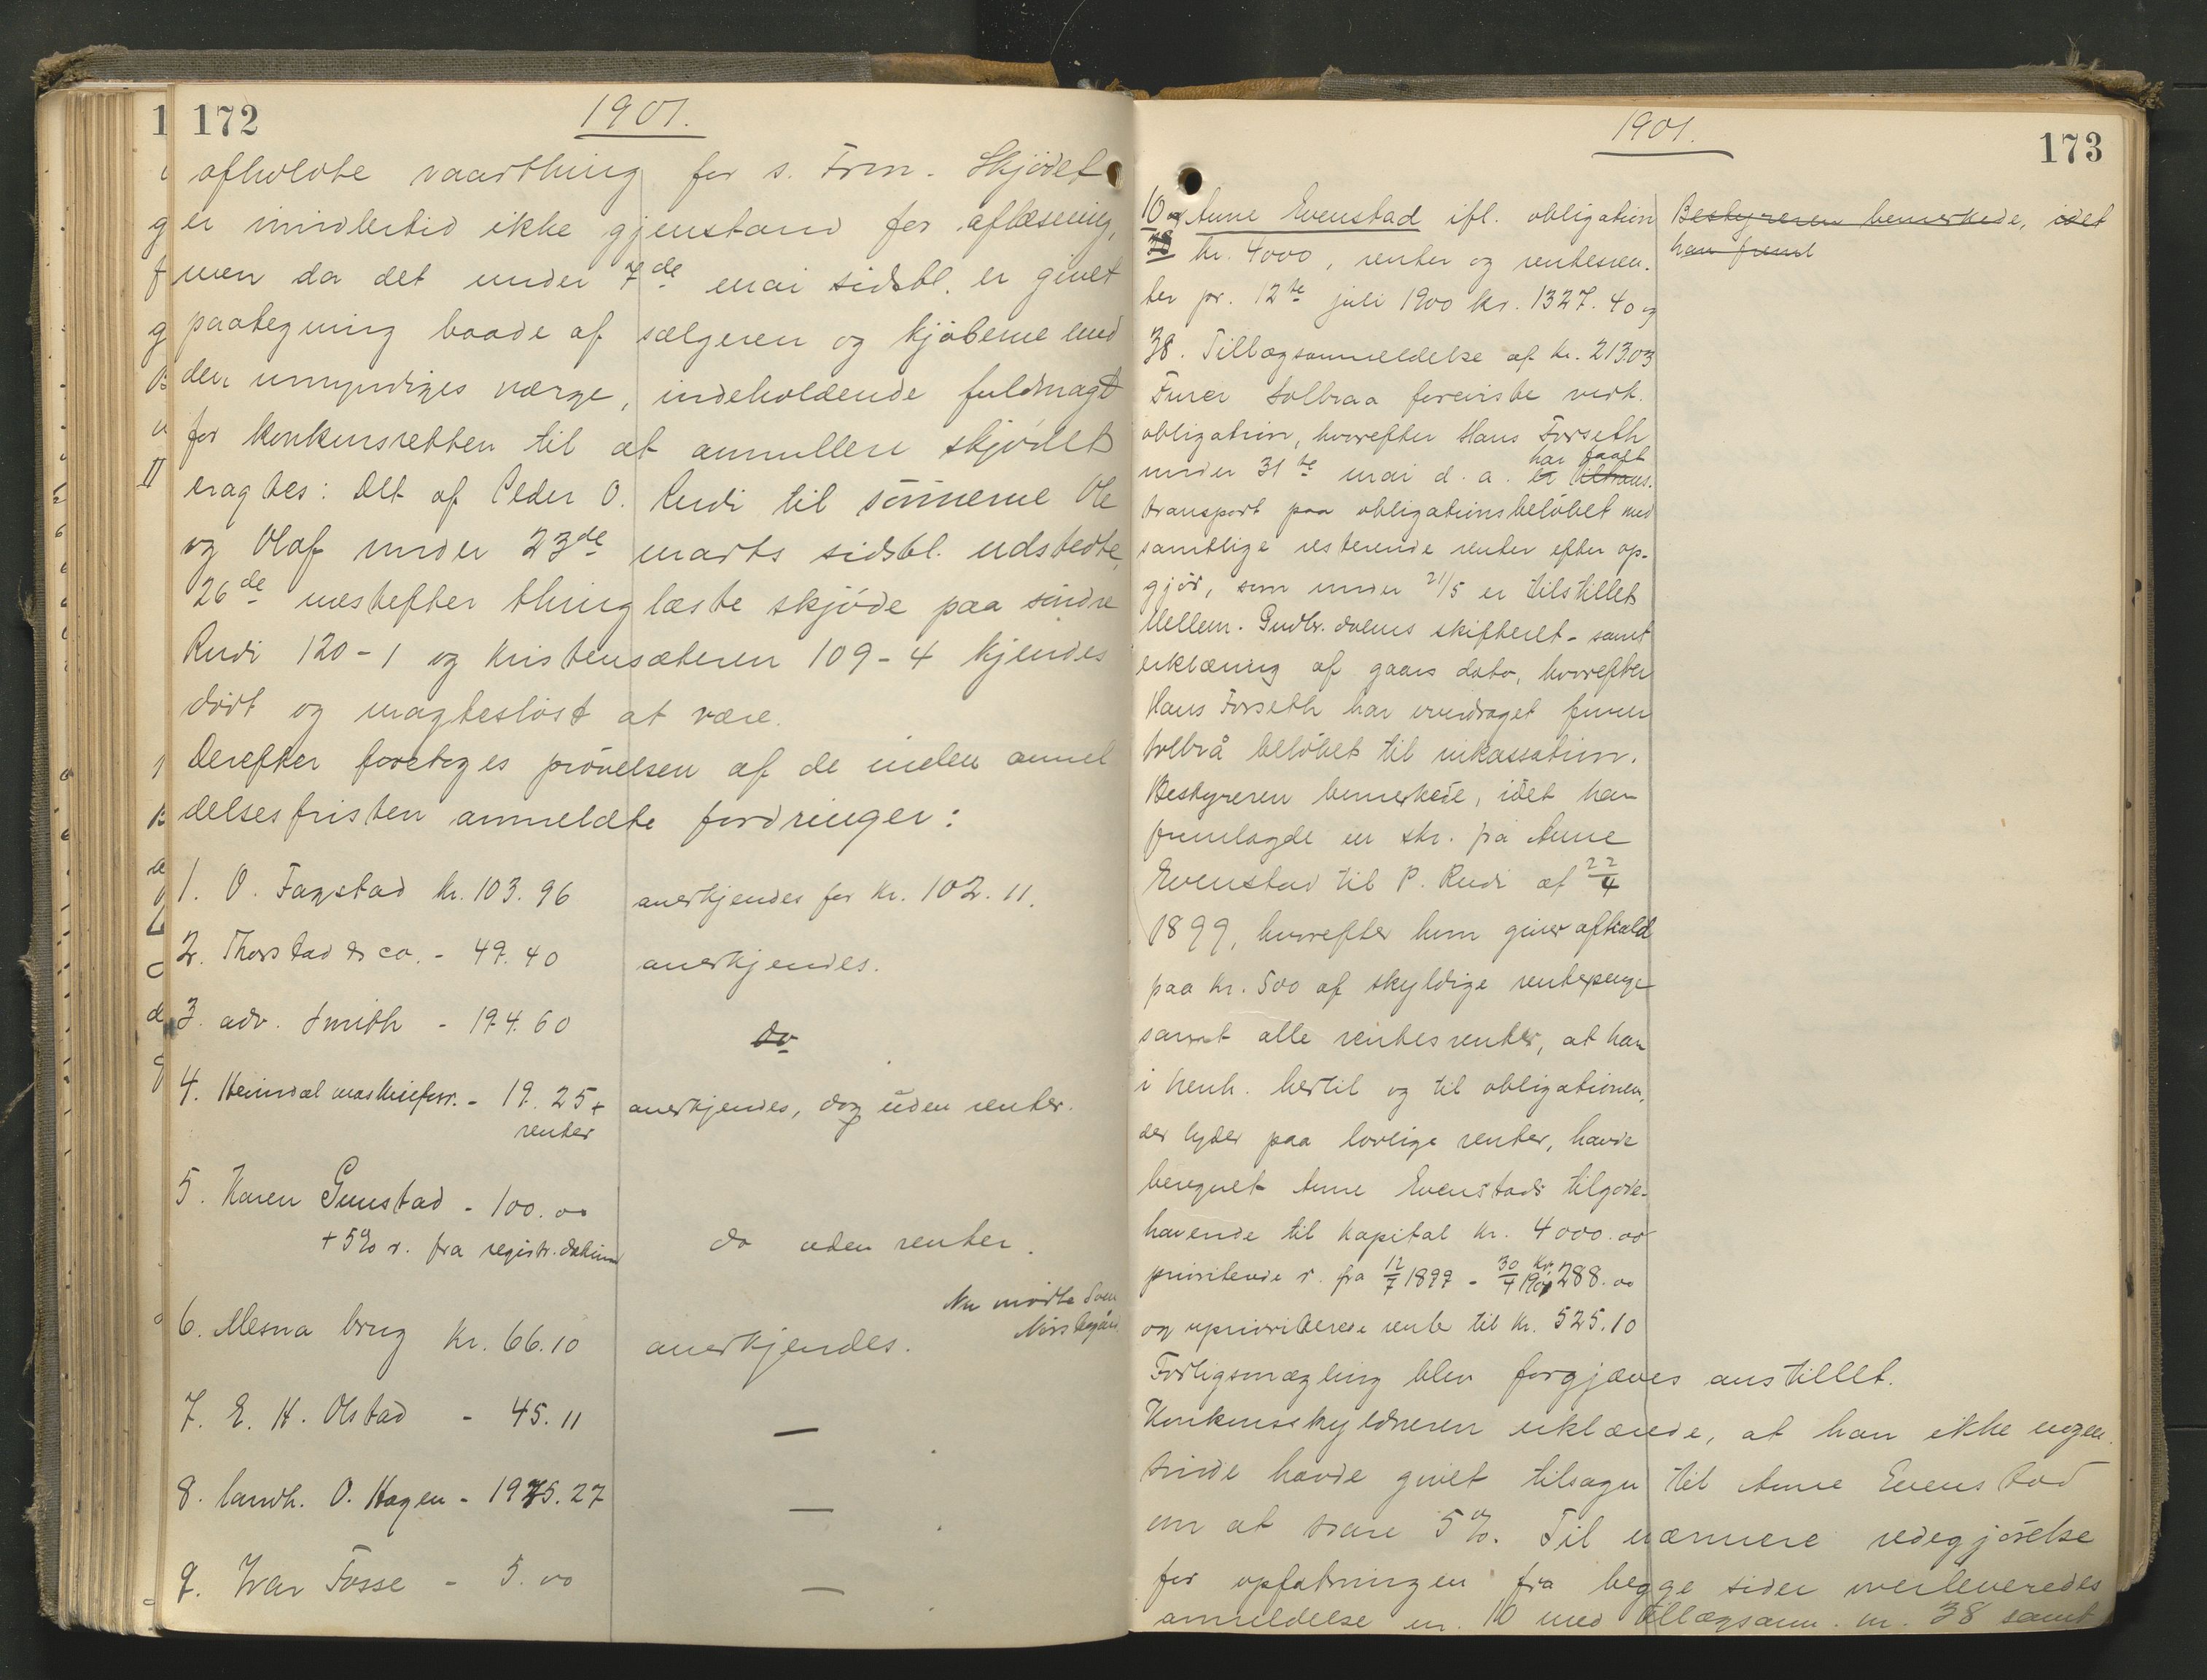 172
1901.
afholdte vaarthing for s. Frm. Skjödet
er imidlertid ikke gjenstand for aflæsning,
men da det under 7de mai sidstl. er givet
paategning baade af sælgeren og kjöberne med
den umyndiges værge, indeholdende fuldmagt
for konkursretten til at annullere skjödet
eragtes: Det af Peder O. Rudi til sönnerne Ole
og Olaf under 23de marts sidstl. udstedte,
26de næstefter thinglæste skjöde paa söndre
Rudi 120-1 og Kristensæteren 109-4 kjendes
dödt og magteslöst at være.
Derefter foretoges prövelsen af de inden anmel
delsesfristen anmeldte fordringer:
1. O. Fagstad kr. 103.96 anerkjendes for kr. 102.11.
2. Thorstad & co. - 49.40 anerkjendes.
3. adv. Smith - 194.60 do
4. Heimdal maskinforr. - 19.25 + renter anerkjendes, dog uden renter.
5. Karen Gunstad - 100.00
+ 5% r. fra registr. datum do uden renter.
Nu mödte
6. Mesna brug kr. 66.10 anerkjendes.
7. E. H. Olstad - 45.11 —
8. landh. O. Hagen - 1975.27 —
9. Ivar Fosse - 5.00 —
1901.
173
10 og Anne Evenstad ifl. obligation Bestyreren bemerkede, idet
38 kr. 4000, renter og rentesren- han freml
ter pr. 12te juli 1900 kr. 1327.40 og
38. Tillægsanmeldelse af kr. 213.03
Furer Solbraa foreviste vedk.
obligation, hvorefter Hans Forseth
har faaet
under 31te mai d. a. er tiltrans.
transport paa obligationsbelöbet med
samtlige resterende renter efter op-
gjör, som under 21/5 er tilstillet
Mellem. Gudbr. dalens skifteret - samt
erklæring af gaars dato, hvorefter
Hans Forseth har overdraget furer
Solbrå belöbet til inkassation.
Bestyreren bemerkede, idet han
fremlagde en skr. fra Anne
Evenstad til P. Rudi af 22/4
1899, hvorefter hun giver afkald
paa kr. 500 af skyldige rentepenge
samt alle rentesrenter, at han
i henh. hertil og til obligationen,
der lyder paa lovlige renter, havde
beregnet Anne Evenstads tilgode-
havende til kapital kr. 4000.00
prioriterede r. fra 12/7 1899 - 30/4 1901 kr. 288.00
og uprioriterede rente til kr. 525.10
Forligsmægling blev forgjæves anstillet.
Konkursskyldneren erklærede, at han ikke nogen
sinde havde givet tilsagn til Anne Evenstad
om at svare 5%. Til nærmere redegjörelse
for opfatningen fra begge sider overleveredes
anmeldelse nr. 10 med tillægsanm. nr. 38 samt